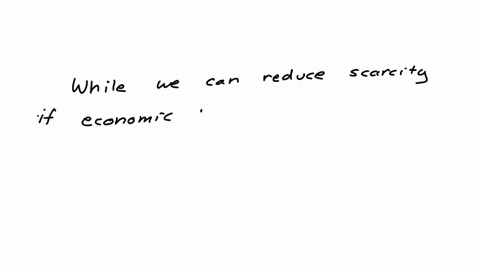 While we can reduce scarcity
if economic